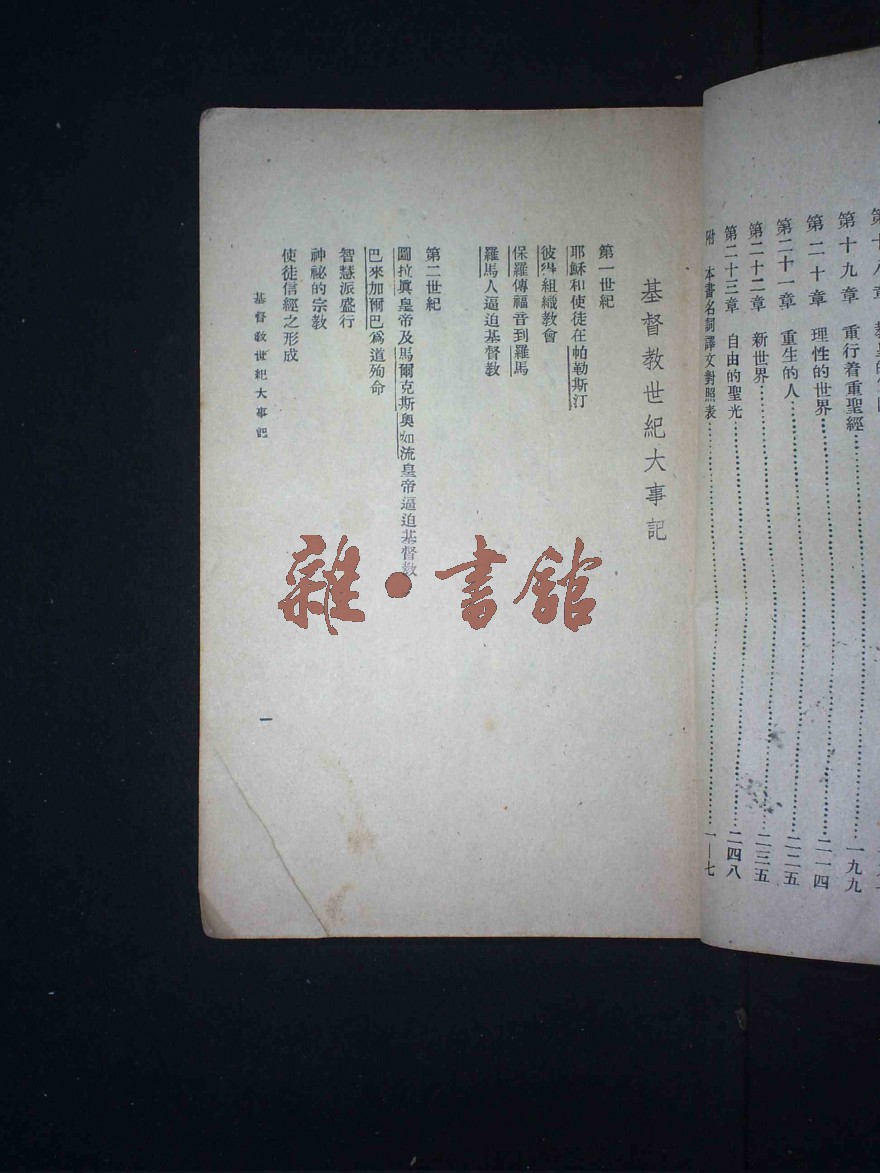 第十九章 重行着重聖經……一九九
第二十章 理性的世界……二一四
第二十一章 重生的人……二二五
第二十二章 新世界……二三五
第二十三章 自由的聖光……二四八
附 本書名詞譯文對照表……一—七
基督教世紀大事記
第一世紀
耶穌和使徒在帕勒斯汀
彼得組織教會
保羅傳福音到羅馬
羅馬人逼迫基督教
第二世紀
圖拉眞皇帝及馬爾克斯奧如流皇帝逼迫基督教
巴來加爾巴爲道殉命
智慧派盛行
神祕的宗教
使徒信經之形成
基督教世紀大事記
一
雜·書館